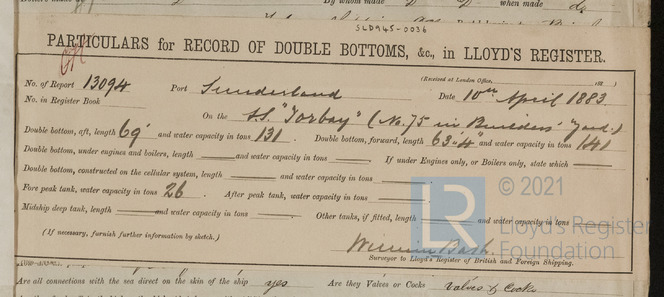 By whom made when made
SLD945-0036
PARTICULARS for RECORD OF DOUBLE BOTTOMS, &c., in LLOYD'S REGISTER.
(Received at London Office, 188 )
No. of Report 13094 Port Sunderland Date 10th April 1883.
No. in Register Book On the S.S. "Torbay" (No. 75 in Builders' Yard.)
Double bottom, aft, length 69' and water capacity in tons 131. Double bottom, forward, length 63'.4" and water capacity in tons 141
Double bottom, under engines and boilers, length —— and water capacity in tons —— If under Engines only, or Boilers only, state which ——
Double bottom, constructed on the cellular system, length —— and water capacity in tons ——
Fore peak tank, water capacity in tons 26. After peak tank, water capacity in tons ——.
Midship deep tank, length —— and water capacity in tons —— Other tanks, if fitted, length —— and water capacity in tons
(If necessary, furnish further information by sketch.)
William Bath.
Surveyor to Lloyd's Register of British and Foreign Shipping.
© 2021
LR
Lloyd's Register
Foundation
Are all connections with the sea direct on the skin of the ship yes Are they Valves or Cocks Valves & Cocks